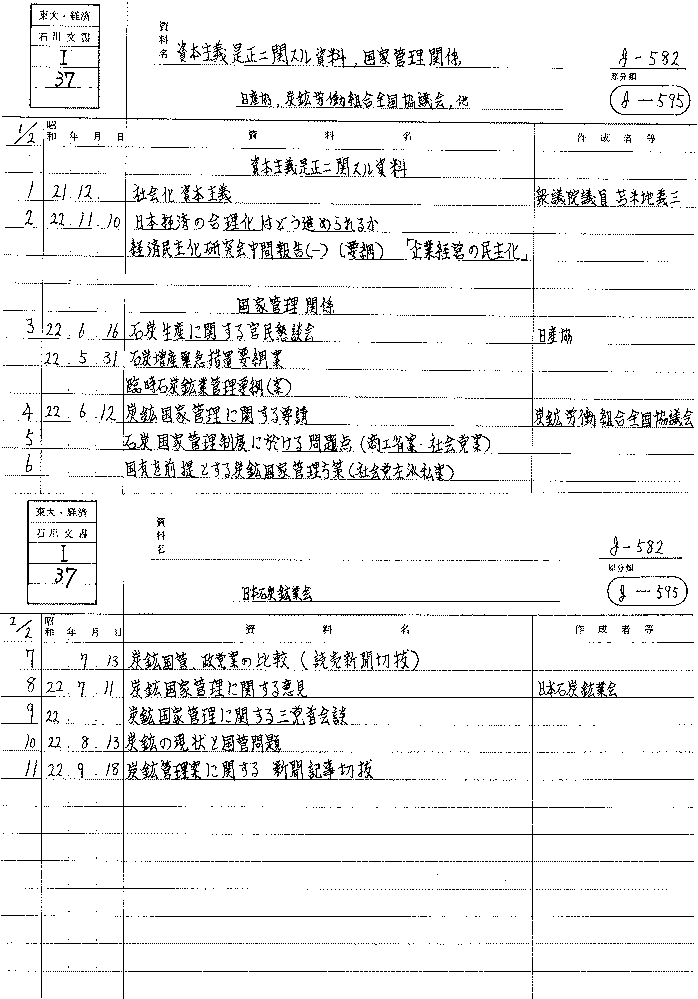 東大・経済
石川文書
I
37
資料名 資本主義是正ニ関スル資料, 国家管理関係
日産協, 炭鉱労働組合全国協議会, 他
J-582
原分類
J-595
1/2 昭和 年 月 日 資料名 作成者等
資本主義是正ニ関スル資料
1 21.12. 社会化資本主義 衆議院議員 苫米地義三
2 22.11.10 日本経済の合理化はどう進められるか
経済民主化研究会中間報告(一)(要綱)「企業経営の民主化」
国家管理関係
3 22.6.16 石炭生産に関する官民懇談会 日産協
22.5.31 石炭増産緊急措置要綱案
臨時石炭鉱業管理要綱(案)
4 22.6.12 炭鉱国家管理に関する要請 炭鉱労働組合全国協議会
5 石炭国家管理制度に於ける問題点(商工省案・社会党案)
6 国有を前提とする炭鉱国家管理方策(社会党左派私案)
東大・経済
石川文書
I
37
資料名
日本石炭鉱業会
J-582
原分類
J-595
2/2 昭和 年 月 日 資料名 作成者等
7 7.13 炭鉱国管 政党案の比較(読売新聞切抜)
8 22.7.11 炭鉱国家管理に関する意見 日本石炭鉱業会
9 22. 炭鉱国家管理に関する三党首会談
10 22.8.13 炭鉱の現状と国管問題
11 22.9.18 炭鉱管理案に関する 新聞記事切抜